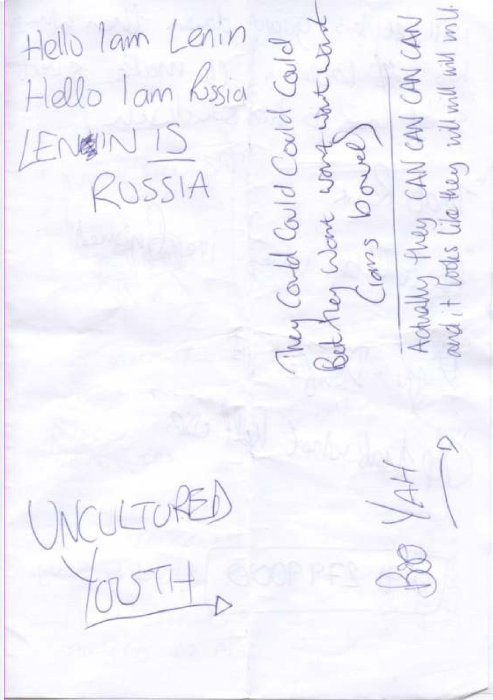 Hello I am Lenin
Hello I am Russia
LENIN IS
RUSSIA
They Could Could Could Could
But they Wont wont wont wont
Crans bowels
Actually they CAN CAN CAN CAN
and it looks like they will will will will.
UNCULTURED
YOUTH
Boo YAH